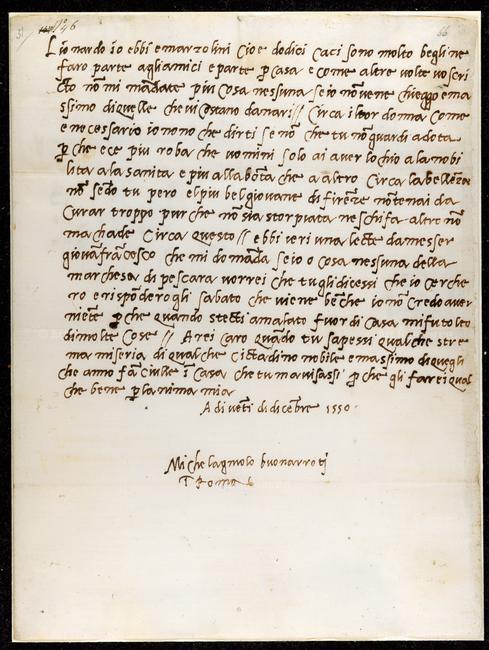 66
Lionardo io ebbi e marzolini cioe dodici caci sono molto begli ne
faro parte agli amici e parte p casa e come altre volte vo scri
cto nō mi mādate piu cosa nessuna se io nō ve ne chieggo e ma
ssimo di quelle che vi costano danari // Circa il tor donna come
e necessario io non o che dirti se nō che tu nō guardi a dota
p che e c e piu roba che uomini solo ai aver lochio a la nobi
lita a la sanita e piu alla bōta che a altro Circa la belleza
nō sēdo tu pero el piu bel giovane di firenze nō te nai da
curar troppo pur che nō sia storpiata ne schifa altro nō
macchade Circa questo // ebbi ieri una lecte da messer
giovāfrācesco che mi domāda se io o cosa nessuna della
marchesa di pescara vorrei che tu gli dicessi che io cerche
ro e rispōderogli sabato che viene bēche io nō credo aver
niēte p che quādo stecti amalato fuor di casa mi fu tolto
di molte cose // Arei caro quādo tu sapessi qualche stre
ma miseria di qualche cictadino nobile e massimo di quegli
che āno fāciulle i casa che tu m avisassi p che gli farei qual
che bene p lanima mia
A di vēti di dicēbre 1550
Michelagniolo buonarroti
ī Roma